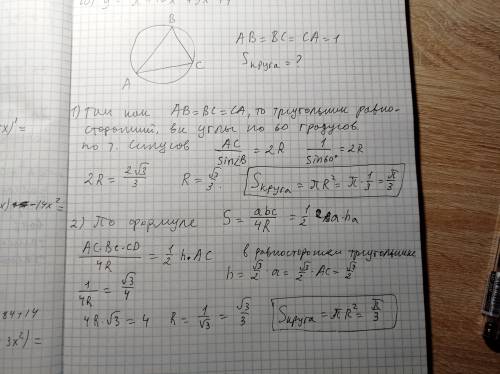 B
A
C
AB = BC = CA = 1
Sкруга = ?
1) Так как AB = BC = CA, то треугольник равно-
сторонний, все углы по 60 градусов.
по т. синусов AC/sin∠B = 2R 1/sin60° = 2R
2R = 2√3/3 R = √3/3. Sкруга = πR² = π·1/3 = π/3
2) По формуле S = abc/4R = 1/2 a·ha
AC·BC·CD/4R = 1/2 h·AC
в равностороннем треугольнике
h = √3/2 · a = √3/2 · AC = √3/2
1/4R = √3/4
4R·√3 = 4 R = 1/√3 = √3/3 Sкруга = πR² = π/3
-14x² =
84+14
3x²) =